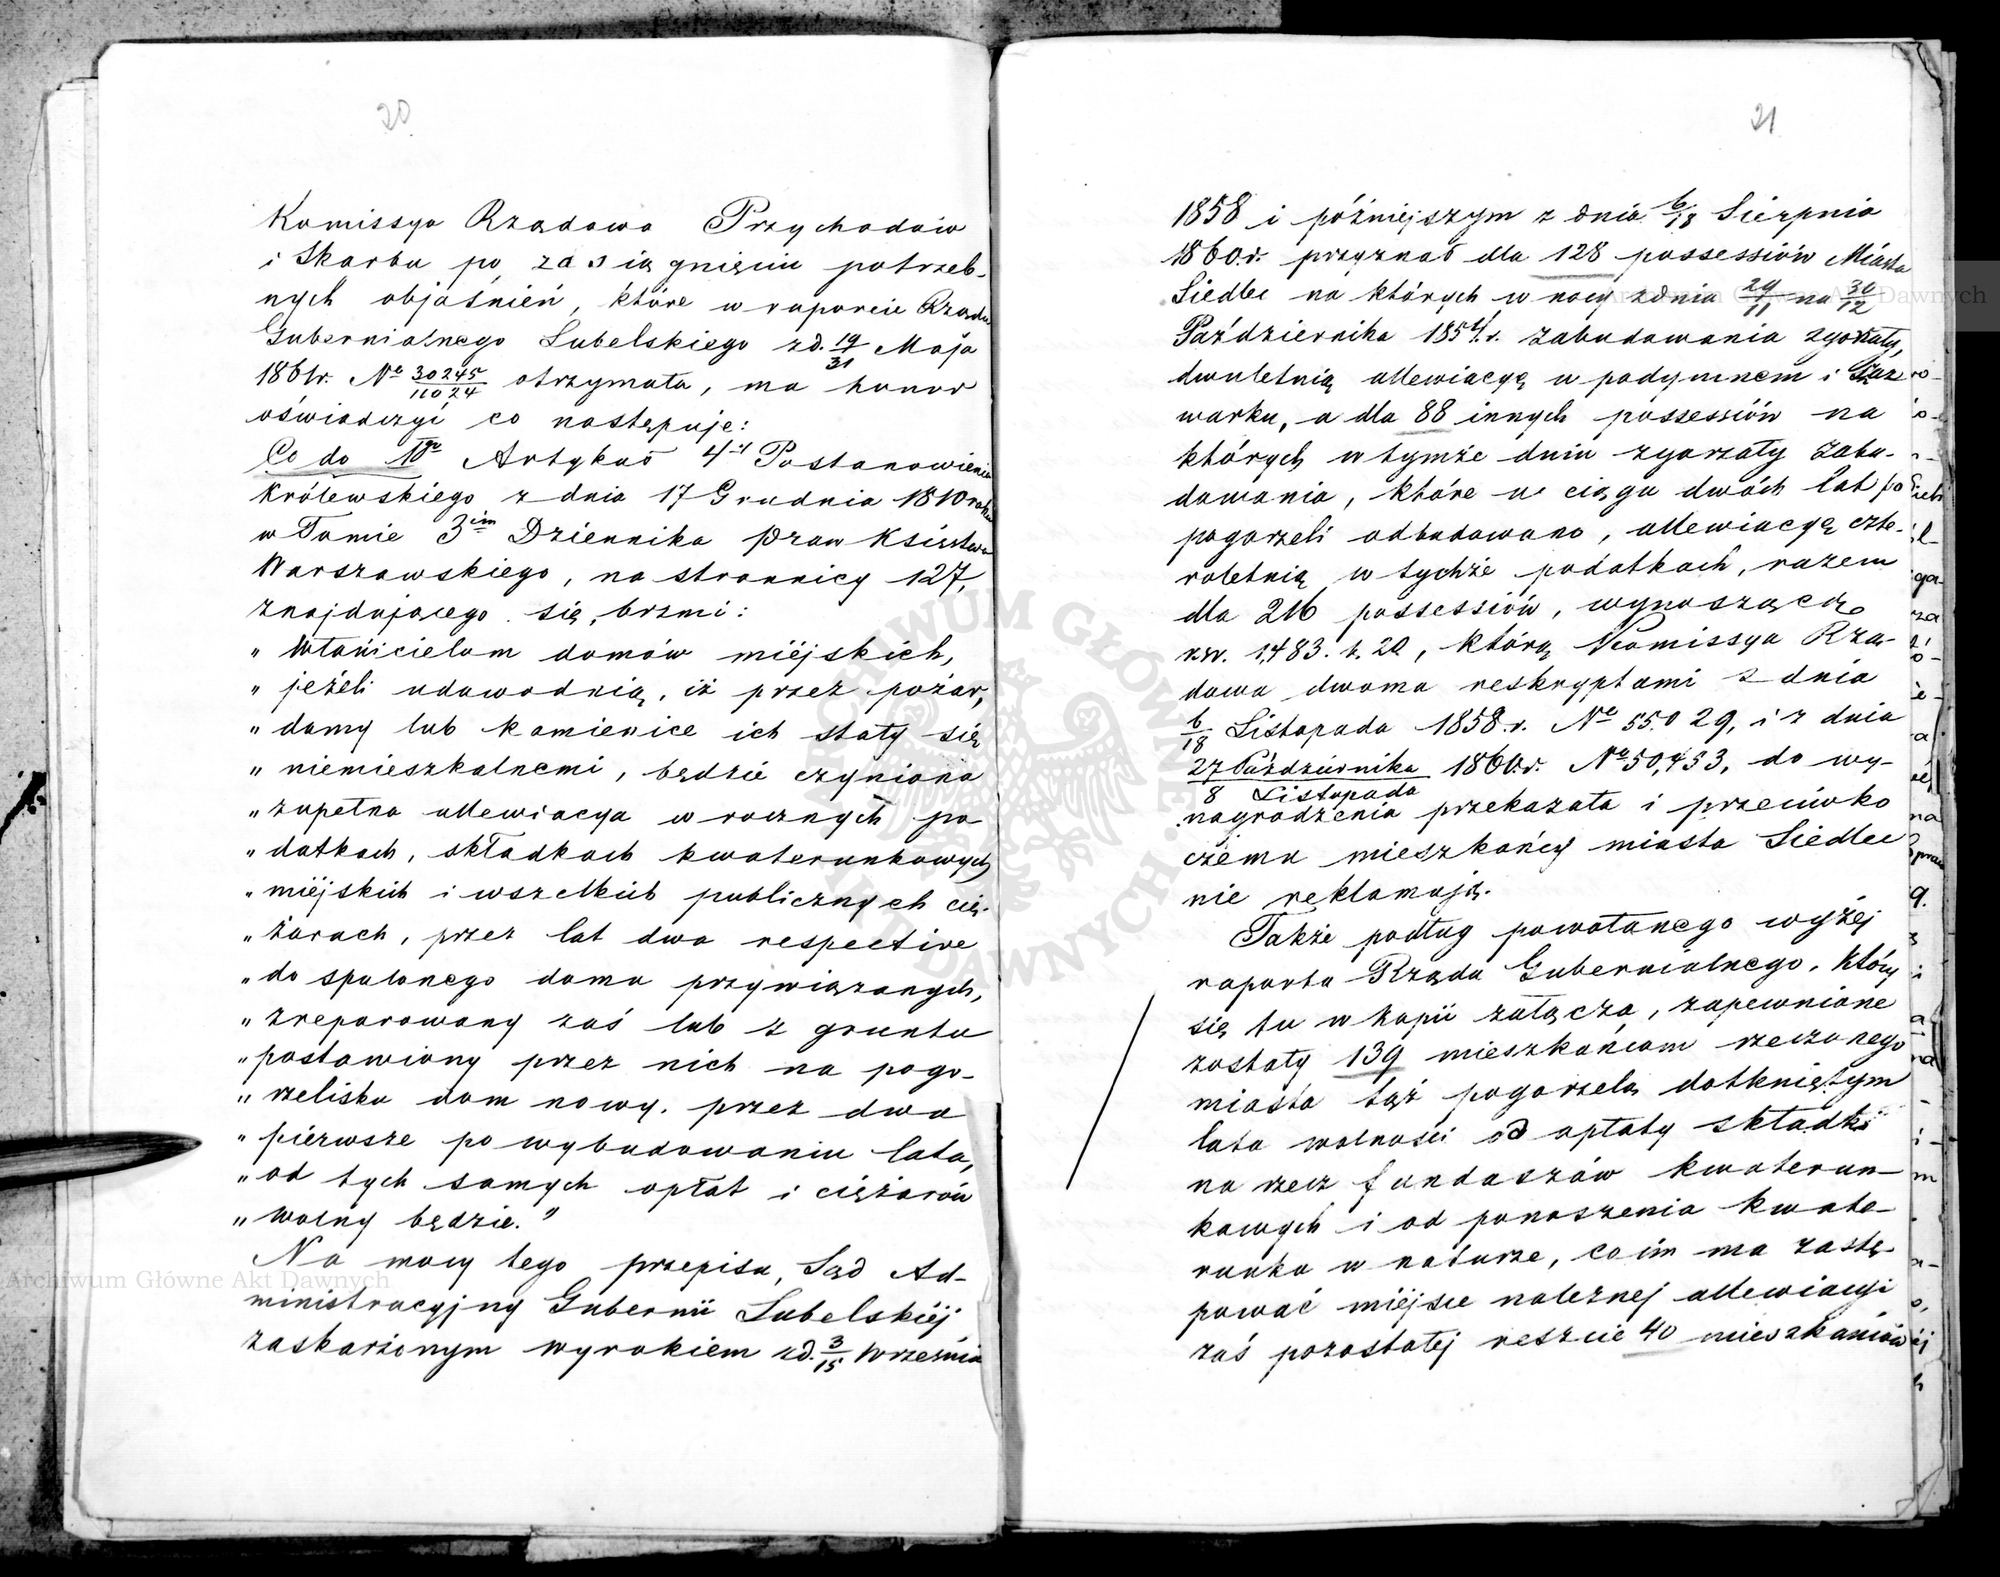 20
Komissya Rządowa Przychodów
i Skarbu po zasiągnięciu potrzeb-
nych objaśnień, które w raporcie Rządu
Gubernialnego Lubelskiego z d. 19/31 Maja
1861r. No 30245/11024 otrzymała, ma honor
oświadczyć co następuje:
Co do Igo Artykuł 4ty Postanowienia
Królewskiego z dnia 17 Grudnia 1810 roku
w Tomie 3cim Dziennika praw Księstwa
Warszawskiego, na stronnicy 127,
znajdującego się, brzmi:
" Włańcicielom domów miéjskich,
" jeżeli udowodnią, iż przez pożar,
" domy lub kamienice ich stały się
" niemieszkalnemi, będzie czyniona
" zupełna allewiacya w rocznych po
" datkach, składkach kwaterunkowych
" miéjskich i wszelkich publicznych cię-
" żarach, przez lat dwa respective
" do spalonego domu przywiązanych,
" zreparowany zaś lub z gruntu
" postawiony przez nich na pogo-
" rzelisku dom nowy, przez dwa
" piérwsze po wybudowaniu lata,
" od tych samych opłat i ciężarów
" wolny będzie."
Na mocy tego przepisu, Sąd Ad-
ministracyjny Gubernii Lubelskiéj
zaskarżonym wyrokiem z d. 3/15 Września
21
1858 i późniejszym z dnia 6/18 Sierpnia
1860.r. przyznał dla 128 possessiów Miasta
Siedlec na których w nocy z dnia 29/11 na 30/12
Października 1854.r. zabudowania zgorzały,
dwuletnią allewiacyę w podymnem i Szar
warku, a dla 88 innych possessiów na
których w tymże dniu zgorzały zabu-
dowania, które w ciągu dwóch lat po
pogorzeli odbudowano, allewiacyę czte-
roletnią w tychże podatkach, razem
dla 216 possessiów, wynoszącą
rsr. 1,483. k. 20, którą Komissya Rzą-
dowa dwoma reskryptami z dnia
6/18 Listopada 1858.r. No 55.029, i z dnia
27 Października/8 Listopada 1860.r. No 50,453, do wy-
nagrodzenia przekazała i przeciwko
czemu mieszkańcy miasta Siedlec
nie reklamują.
Także podług powołanego wyżéj
raportu Rządu Gubernialnego, który
się tu w kopii załącza, zapewnione
zostały 139 mieszkańcom rzeczonego
miasta tąż pogorzelą dotkniętym
lata wolności od opłaty składki
na rzecz funduszów kwaterun-
kowych i od ponoszenia kwate-
runku w naturze, co im ma zastę-
pować miéjsce należnej allewiacyi
zaś pozostałej reszcie 40 mieszkańców